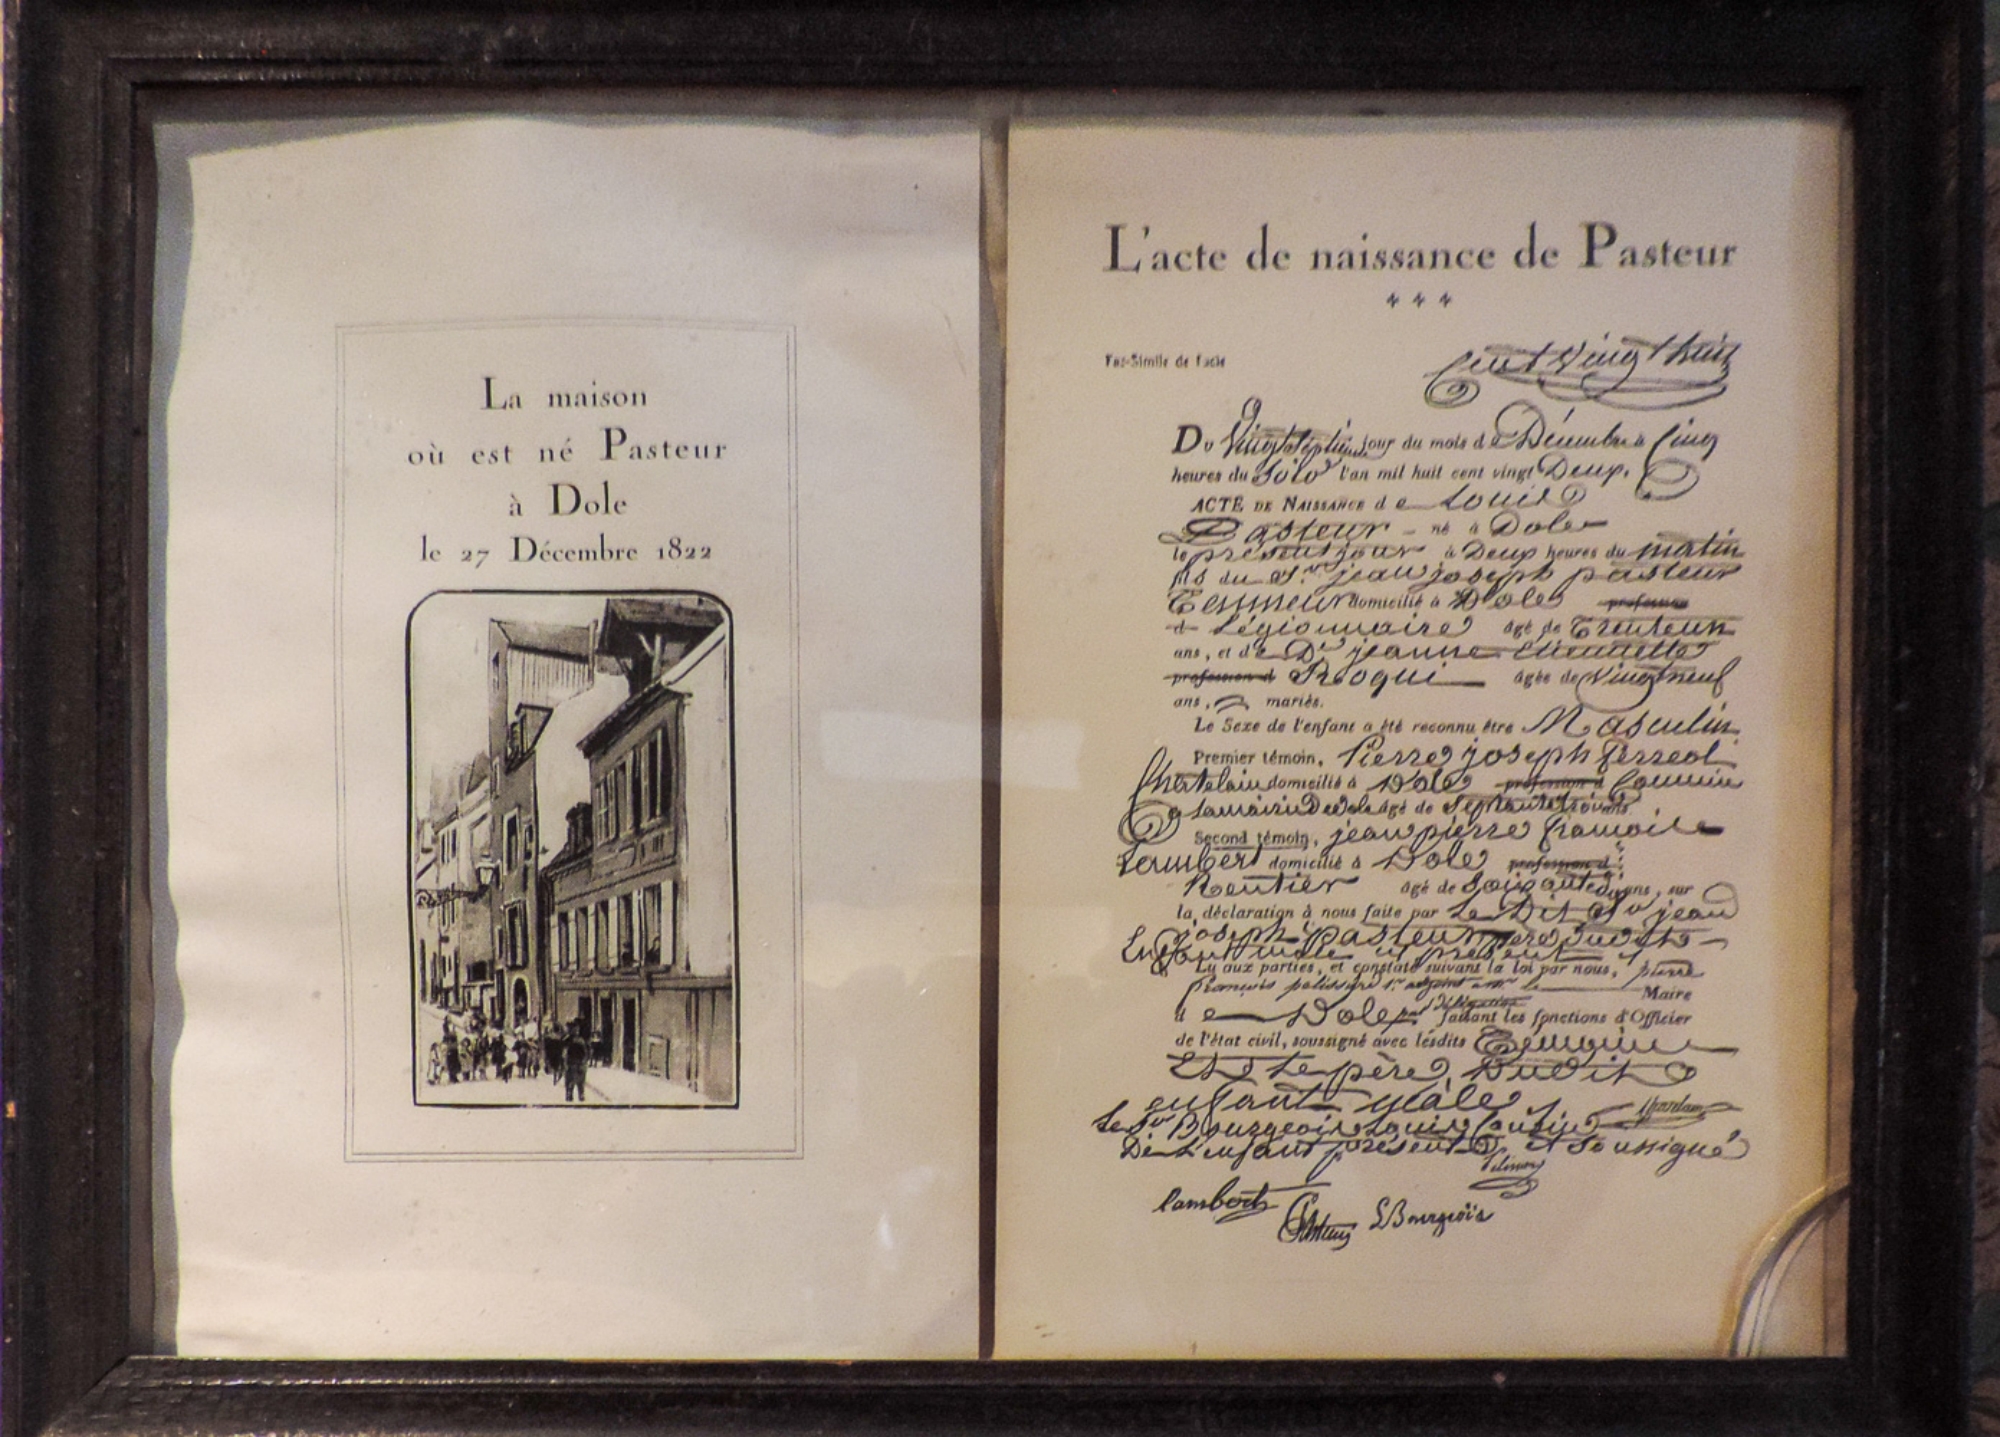 La maison
où est né Pasteur
à Dole
le 27 Décembre 1822
L'acte de naissance de Pasteur
Fac-Simile de l'acte
Cent Vingt huit
Du Vingt Septième jour du mois de Décembre à Cinq
heures du Soir l'an mil huit cent vingt Deux.
ACTE DE NAISSANCE de Louis
Pasteur né à Dole
le présent jour à Deux heures du matin
fils du Sr. jean joseph pasteur
Tanneur domicilié à Dole profession
d Légionnaire âgé de Trente un
ans, et de De jeanne Etiennette
profession d Roqui âgée de Vingt neuf
ans, mariés.
Le Sexe de l'enfant a été reconnu être Masculin
Premier témoin, Pierre joseph ferreol
Chatelain domicilié à Dole profession d
âgé de ans
Second témoin, jean pierre françois
Lambert domicilié à Dole profession d
Rentier âgé de ans, sur
la déclaration à nous faite par Le Dit Sr jean
joseph Pasteur père dudit
Enfant mâle et présent
Lu aux parties, et constaté suivant la loi par nous, pierre
françois Maire
de Dole par Délégation faisant les fonctions d'Officier
de l'état civil, soussigné avec lesdits Témoins
Et Le père Dudit
enfant mâle
Le Sr Bourgeois Louis
De L'enfant présent et Soussigné
Lambert LBourgeois